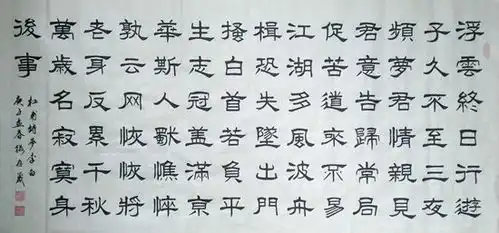 浮雲終日行遊
子久不至三夜
頻夢君情親見
君意告歸常局
促苦道來不易
江湖多風波舟
楫恐失墜出門
搔白首若負平
生志冠蓋滿京
華斯人獨憔悴
孰云网恢恢將
老身反累千秋
萬歲名寂寞身
後事
杜甫詩夢李白
庚子孟春